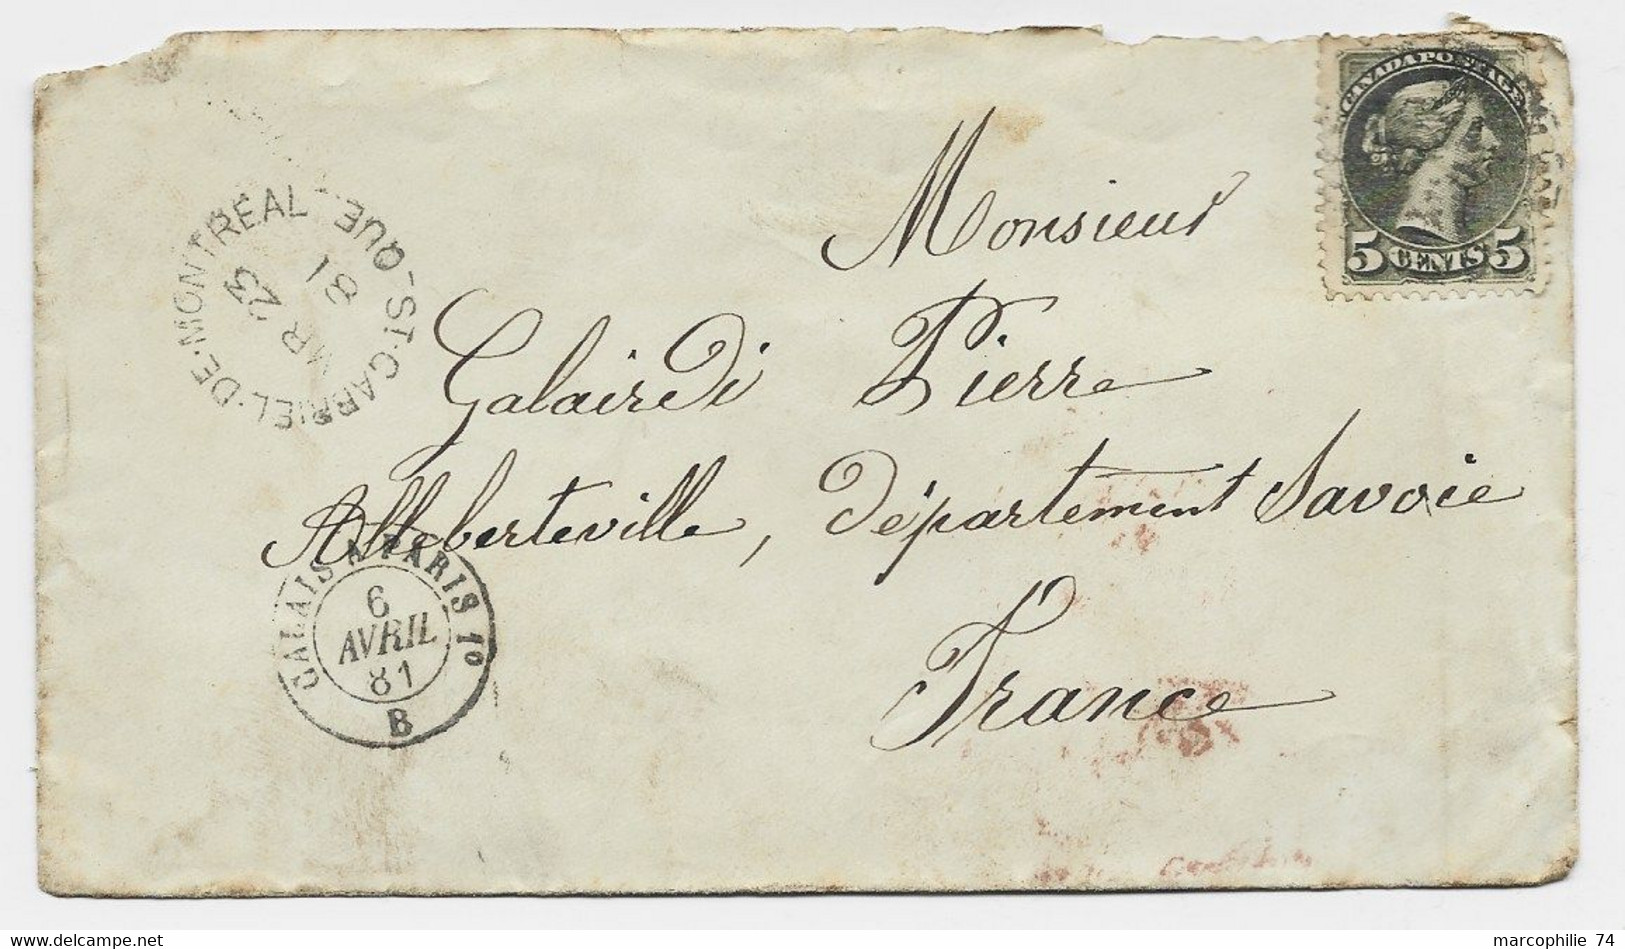 CANADA POSTAGE
5 CENTS 5
ST-GABRIEL-DE-MONTREAL QUE
MR 23
81
Monsieur
Galairdi Pierre
Alleberteville, Département Savoie
France
CALAIS A PARIS 1º
6
AVRIL
81
B
www.delcampe.net
marcophilie 74